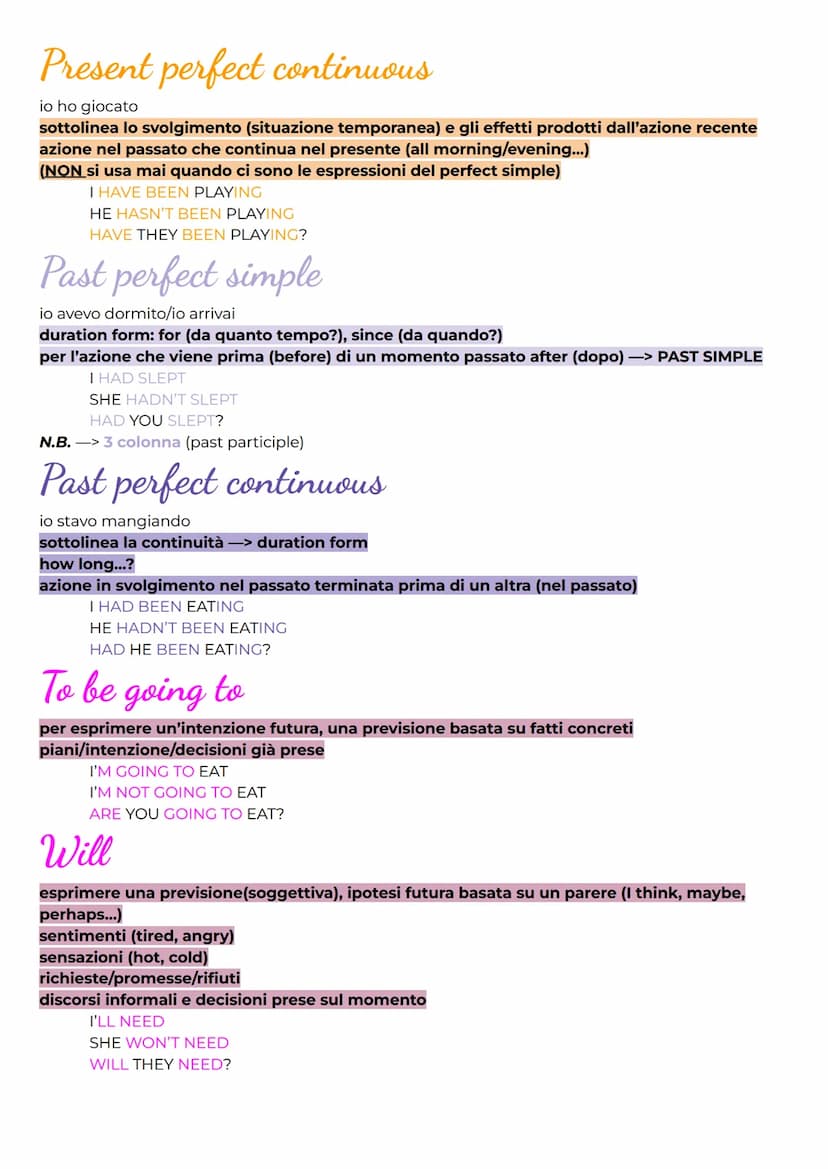 Present perfect continuous
io ho giocato
sottolinea lo svolgimento (situazione temporanea) e gli effetti prodotti dall'azione recente
azione nel passato che continua nel presente (all morning/evening...)
(NON si usa mai quando ci sono le espressioni del perfect simple)
I HAVE BEEN PLAYING
HE HASN'T BEEN PLAYING
HAVE THEY BEEN PLAYING?
Past perfect simple
io avevo dormito/io arrivai
duration form: for (da quanto tempo?), since (da quando?)
per l'azione che viene prima (before) di un momento passato after (dopo) —> PAST SIMPLE
I HAD SLEPT
SHE HADN'T SLEPT
HAD YOU SLEPT?
N.B. —> 3 colonna (past participle)
Past perfect continuous
io stavo mangiando
sottolinea la continuità —> duration form
how long...?
azione in svolgimento nel passato terminata prima di un altra (nel passato)
I HAD BEEN EATING
HE HADN'T BEEN EATING
HAD HE BEEN EATING?
To be going to
per esprimere un'intenzione futura, una previsione basata su fatti concreti
piani/intenzione/decisioni già prese
I'M GOING TO EAT
I'M NOT GOING TO EAT
ARE YOU GOING TO EAT?
Will
esprimere una previsione(soggettiva), ipotesi futura basata su un parere (I think, maybe,
perhaps...)
sentimenti (tired, angry)
sensazioni (hot, cold)
richieste/promesse/rifiuti
discorsi informali e decisioni prese sul momento
I'LL NEED
SHE WON'T NEED
WILL THEY NEED?